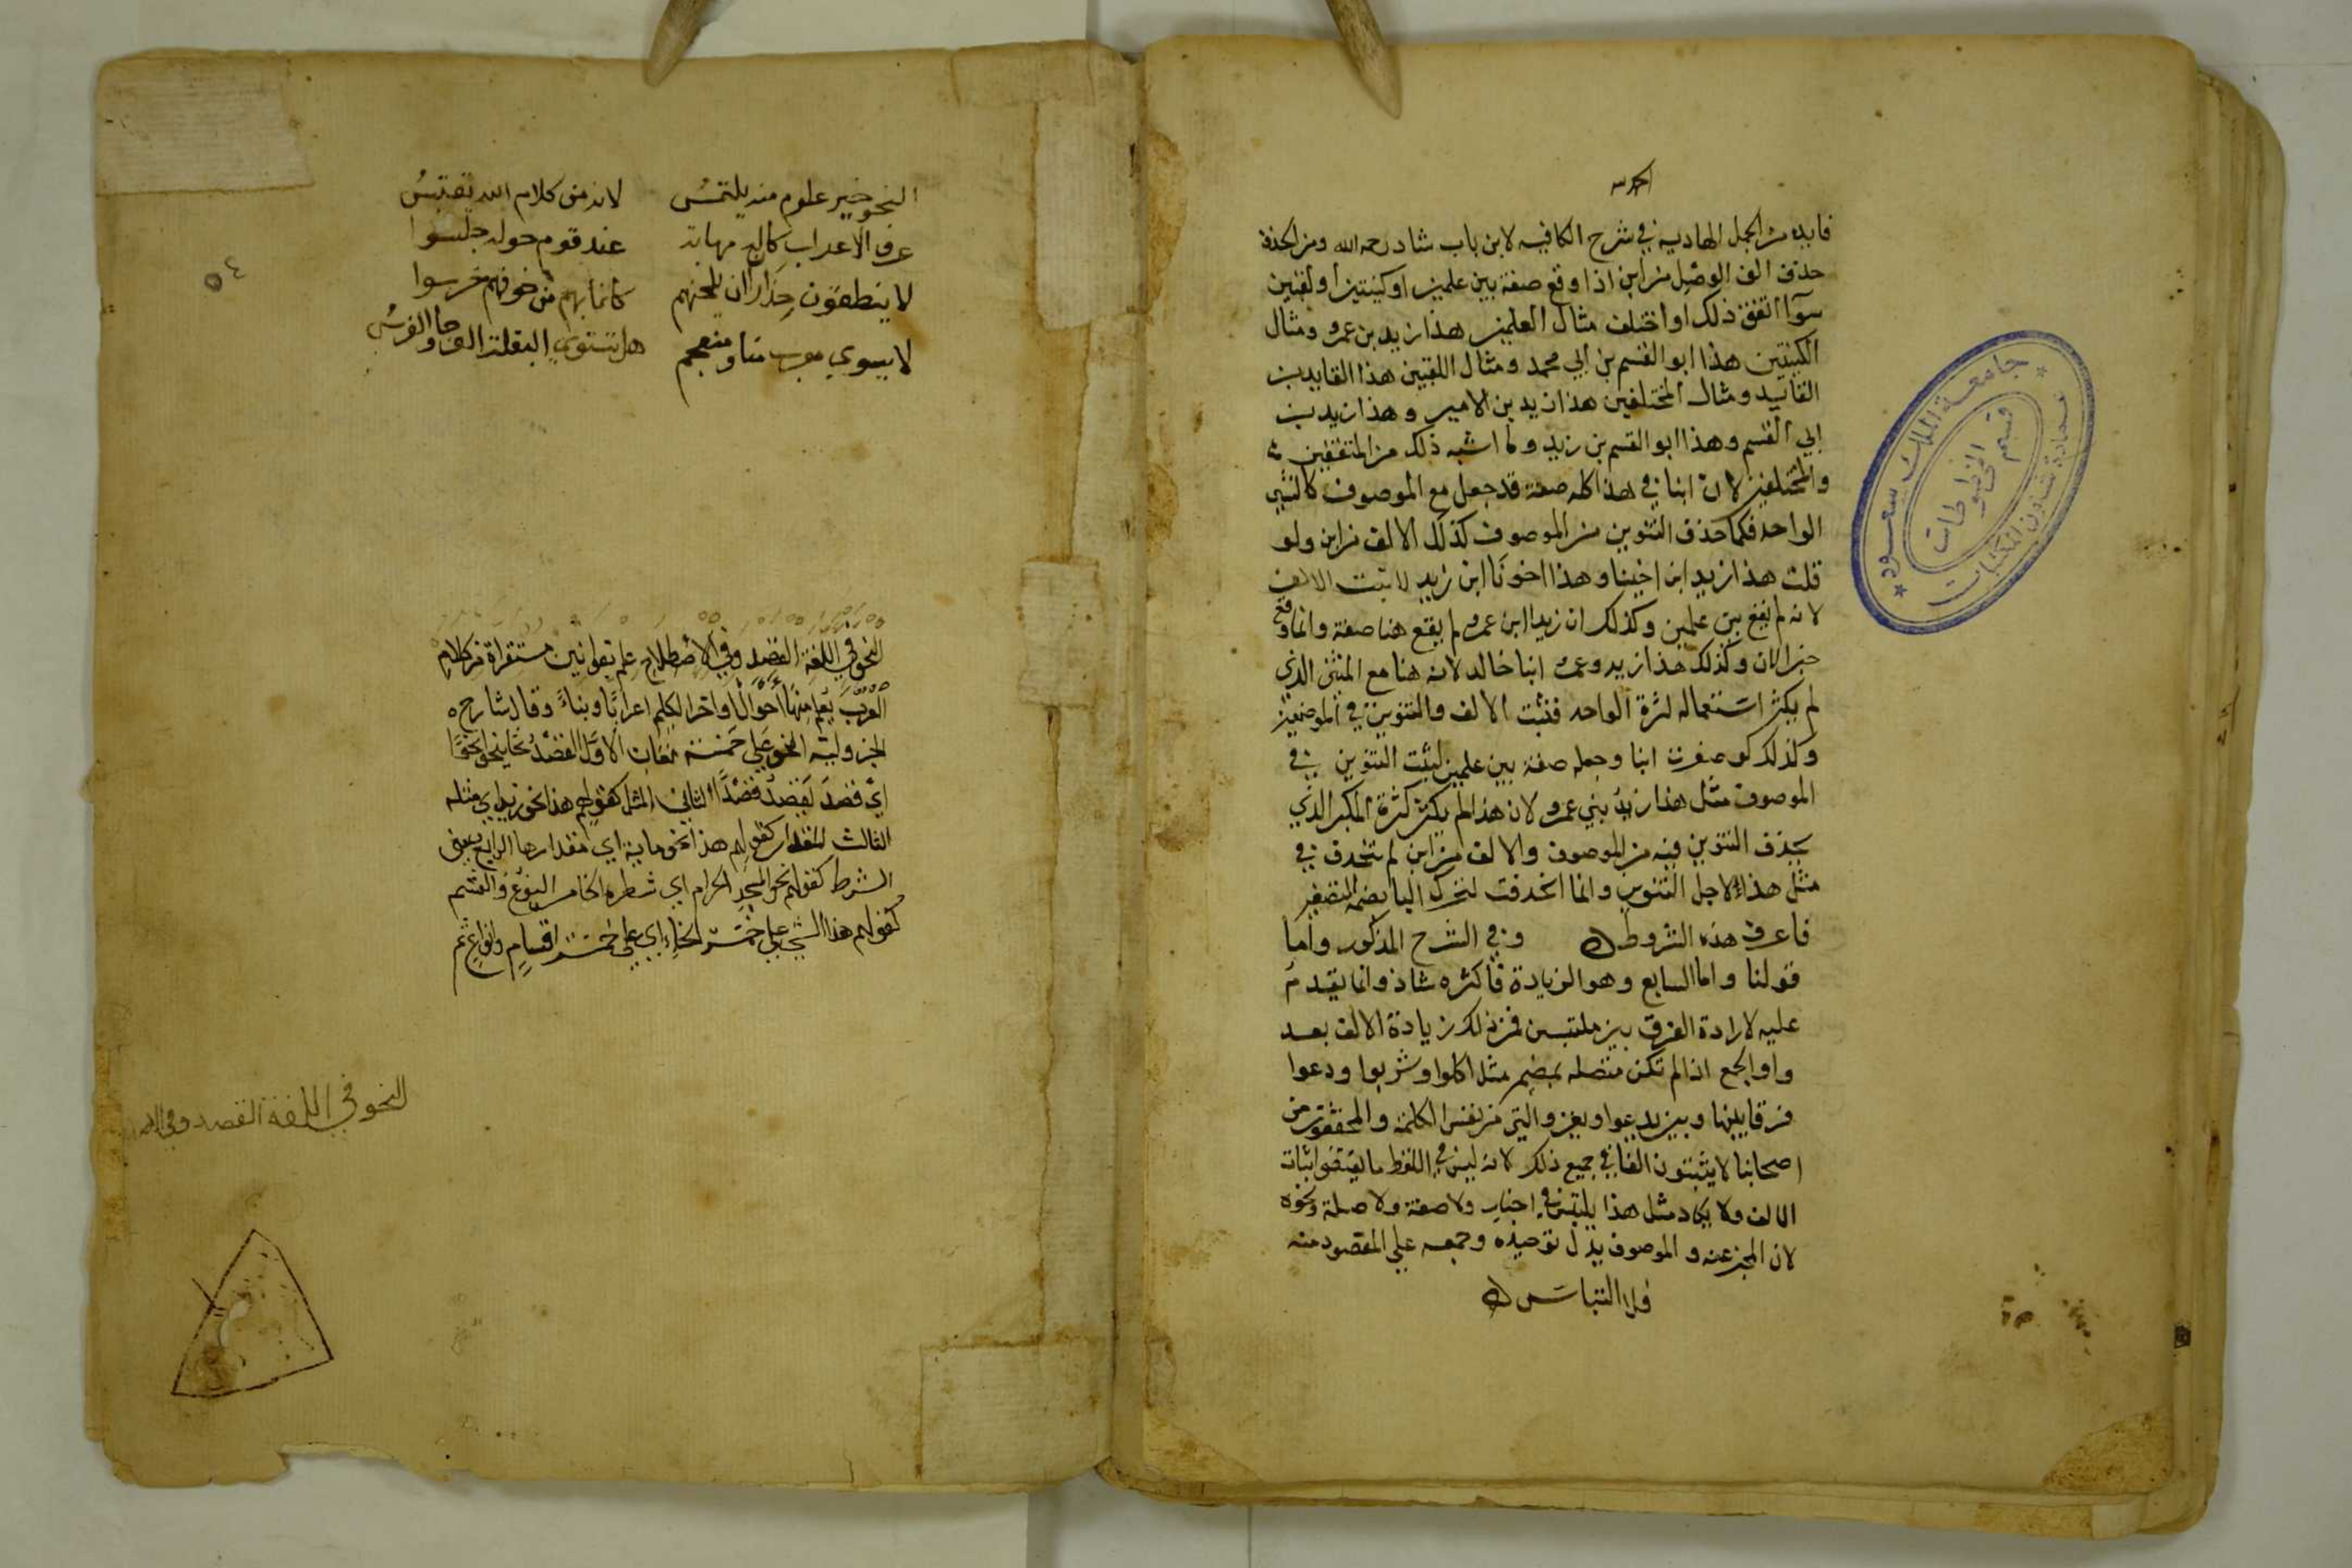 الحمد لله
فايده من الجمل الهاديه في شرح الكافيه لابن باب شاد رحمه الله ومن الحذف
حذف الف الوصل من ابن اذا وقع صفة بين علمين او كنيتين او لقبين
سوآ اتفق ذلك او اختلف مثال العلمين هذا زيد بن عمرو ومثال
الكنيتين هذا ابو القسم بن ابي محمد ومثال اللقبين هذا القايد بن
القايد ومثال المختلفين هذا زيد بن الامير وهذا زيد بن
ابي القسم وهذا ابو القسم بن زيد وما اشبه ذلك من المتفقين
والمختلفين لان ابنا في هذا كله صفة قد جعل مع الموصوف كالشي
الواحد فكما حذف التنوين من الموصوف كذلك الالف من ابن ولو
قلت هذا زيد ابن اخينا وهذا اخونا ابن زيد لاثبت الالف
لانه لم يقع بين علمين وكذلك ان زيدا ابن عمرو لم يقع هنا صفة وانما وقع
خبر الان وكذلك هذا زيد وعمرو ابنا خالد لانه هنا مع المثنى الذي
لم يكثر استعماله كثرة الواحد فتثبت الالف والتنوين في الموضعين
وكذلك لو صغرت ابنا وجعله صفة بين علمين لثبت التنوين في
الموصوف مثل هذا زيدٌ بني عمرو لان هذا لم يكثر كثرة المكبر الذي
يحذف التنوين فيه من الموصوف والالف من ابن لم تحذف في
مثل هذا لاجل التنوين وانما انحذفت لتحرك البا بضمة التصغير
فاعرف هذه الشروط ۵ وفي الشرح المذكور واما
قولنا واما السابع وهو الزيادة فاكثره شاذ وانما يقدم
عليه لارادة الفرق بين ملتبسين فمن ذلك زيادة الالف بعد
واو الجمع اذا لم تكن متصله بضمير مثل اكلوا وشربوا ودعوا
فرقا بينها وبين يدعوا ويغزوا التي من نفس الكلمة والمحققون من
اصحابنا لا يثبتون الفا في جميع ذلك لانه ليس في اللفظ ما يقتضي اثبات
الالف ولا يكاد مثل هذا يلتبس في اخبار ولا صفة ولا صلة ونحوه
لان المخبر عنه والموصوف يدل توحيده وجمعه على المقصود منه
فلا التباس ۵
جامعة الملك سعود
عمادة شئون المكتبات
قسم المخطوطات
النحو خير علوم منه يلتمسُ لانه من كلام الله يقتبسُ
عرف الاعراب كان له مهابة عند قوم حوله جلسوا
لا ينطقون حِذارا ان يلحنهم كانما بهم من خوفهم خرسوا
لا يسوي معرب منا ومنعجم هل تستوي البغلة العرجا والفرسُ
٥٤
النحو في اللغة القصد وفي الاصطلاح علم بقوانين مستقراة من كلام
العرب يعلم منها احوال اواخر الكلم اعرابًا وبناءً وقال شارح
الجزولية النحو على خمسة معان الاول القصد نحا ينحو نحوًا
اي قصدَ يقصدُ قصدًا الثاني المثل كقولهم هذا نحو زيد اي مثله
الثالث المقدار كقولهم هذا نحو ماية اي مقدارها الرابع بمعنى
الشرط كقولهم نحو المسجد الحرام اي شطره الخامس النوع والقسم
كقولهم هذا الشي على خمسة انحاء اي على خمسة اقسام وانواع تم
النحو في اللغة القصد وفي الا